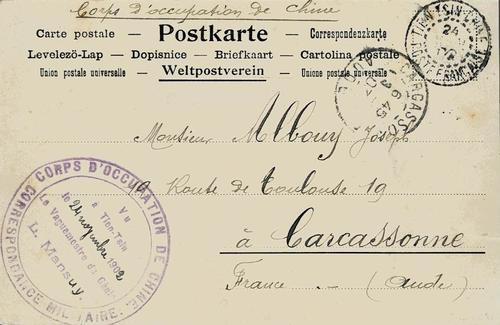 Corps d'occupation de Chine
Carte postale — Postkarte — Correspondenzkarte
Levelező-Lap — Dopisnice — Briefkaart — Cartolina postale
Union postale universelle — Weltpostverein — Unione postale universale
TIEN-TSIN-CHINE
POSTE FRANÇAISE
24
CARCASSONNE
AUDE
6 45
Monsieur Albouy Joseph
Route de Toulouse 19
à Carcassonne
France — (Aude)
CORPS D'OCCUPATION DE CHINE.
CORRESPONDANCE MILITAIRE.
Vu
à Tien-Tsin
le 24 novembre 1902
Le Vaguemestre
F. Mansuy.